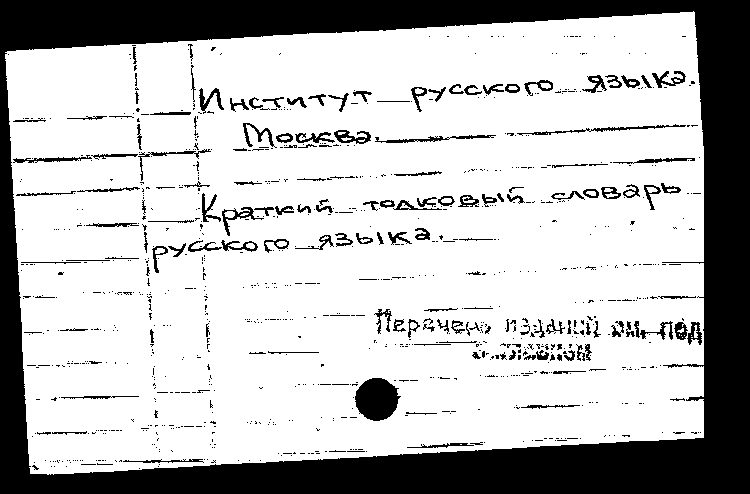 Институт русского языка.
Москва.
Краткий толковый словарь
русского языка.
Перечень изданий см. под